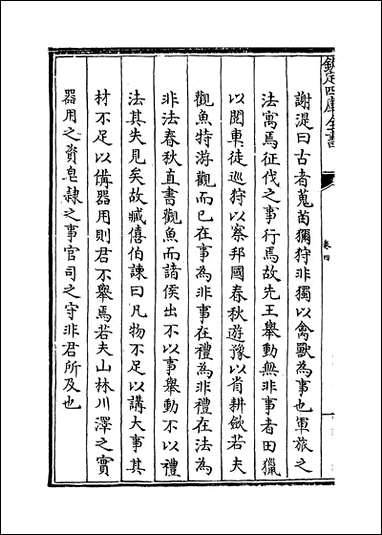 欽定四庫全書
卷四
謝湜曰古者蒐苖獮狩非獨以禽獸為事也軍旅之
法寓焉征伐之事行焉故先王舉動無非事者田獵
以閱車徒巡狩以察邦國春秋遊豫以省耕斂若夫
觀魚特游觀而已在事為非事在禮為非禮在法為
非法春秋直書觀魚而諸侯出不以事舉動不以禮
法其失見矣故臧僖伯諫曰凡物不足以講大事其
材不足以備器用則君不舉焉若夫山林川澤之實
器用之資皂隸之事官司之守非君所及也